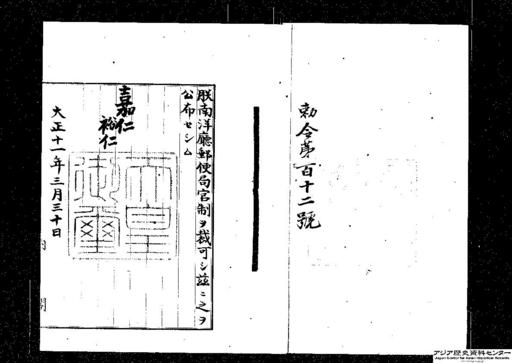 勅令第百十二號
朕南洋廳郵便局官制ヲ裁可シ茲ニ之ヲ
公布セシム
嘉仁
裕仁
天皇御璽
大正十一年三月三十日
内閣
アジア歴史資料センター
Japan Center for Asian Historical Records